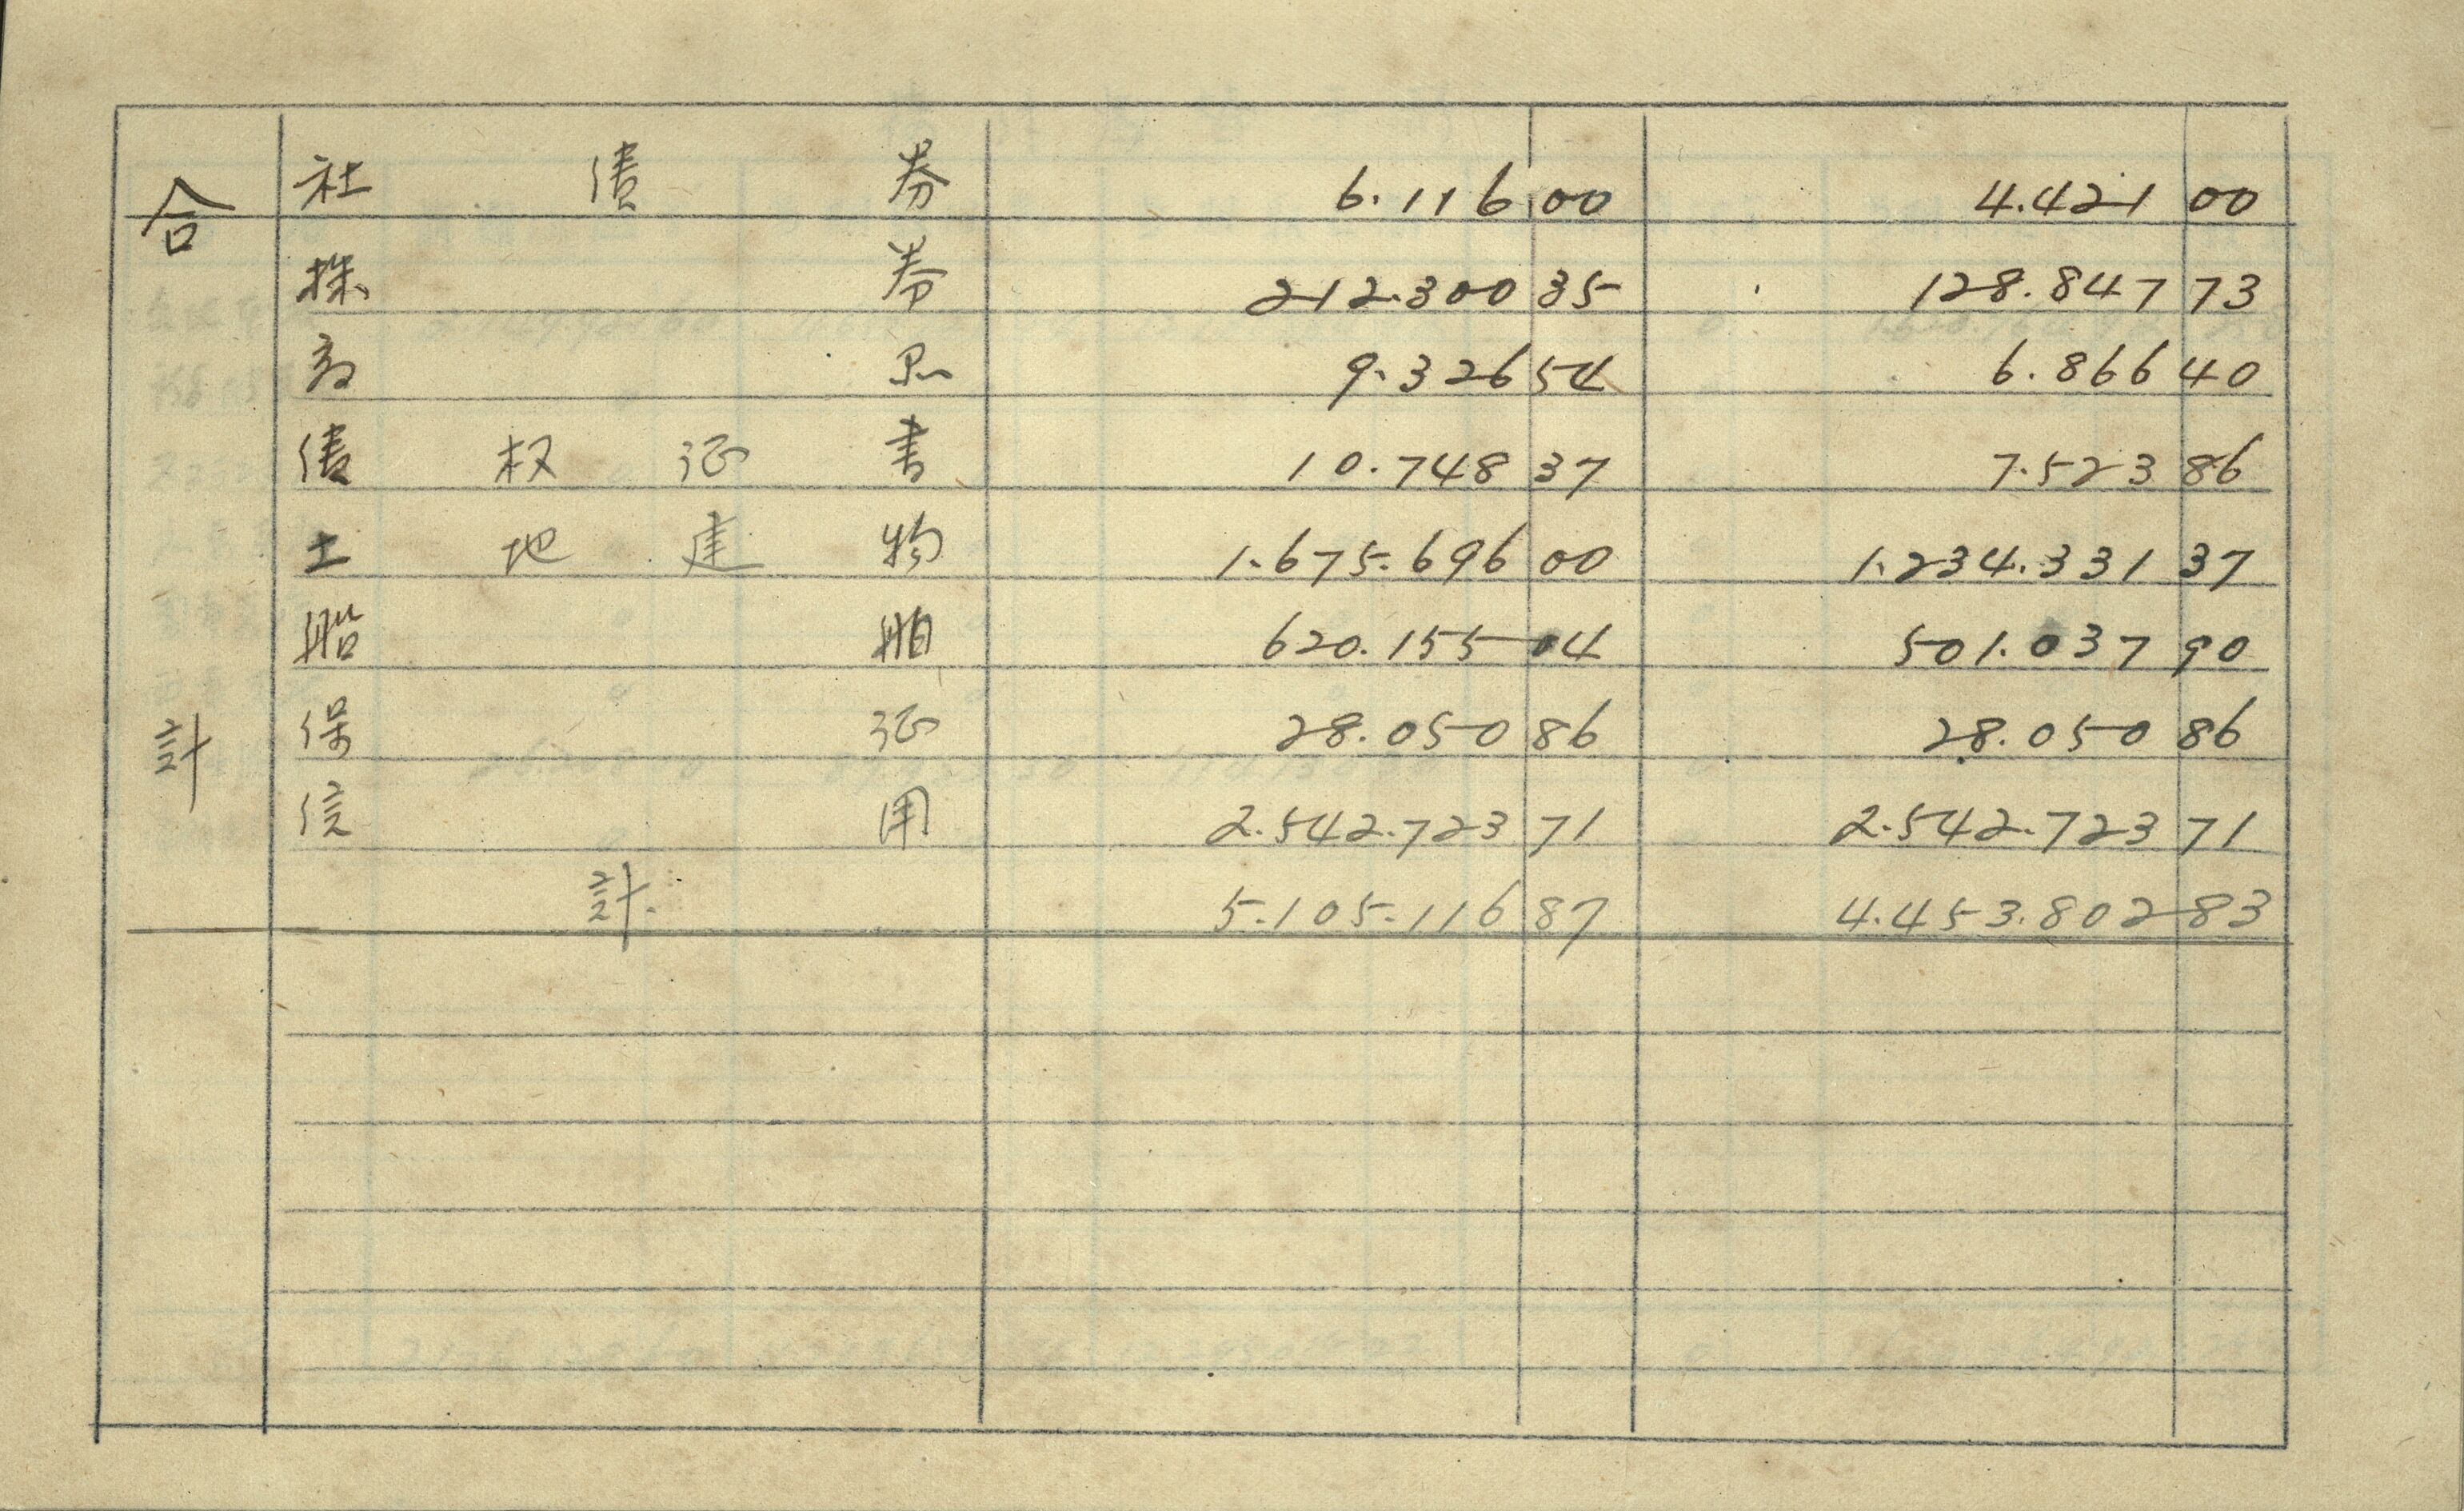 合計
社債券 6.116 00 4.421 00
株券 212.300 35 128.847 73
商品 9.326 54 6.866 40
債权证書 10.748 37 7.523 86
土地建物 1.675.696 00 1.234.331 37
船舶 620.155 04 501.037 90
保证 28.050 86 28.050 86
信用 2.542.723 71 2.542.723 71
計 5.105.116 87 4.453.802 83